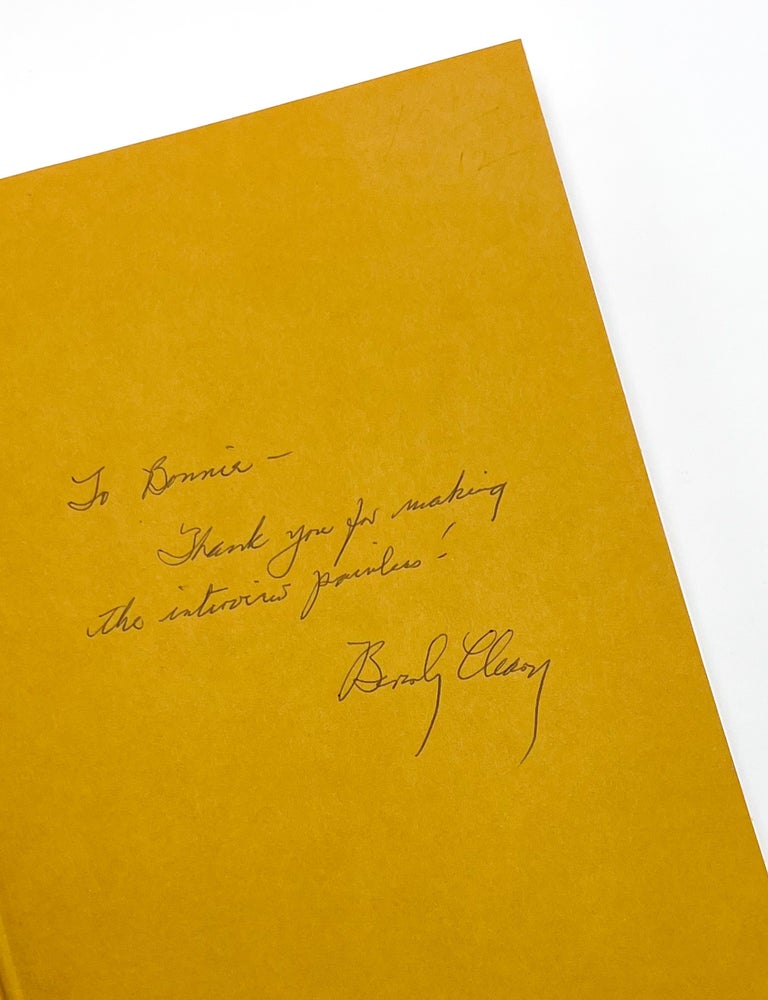 To Bonnie -
Thank you for making
the interview painless!
Beverly Cleary